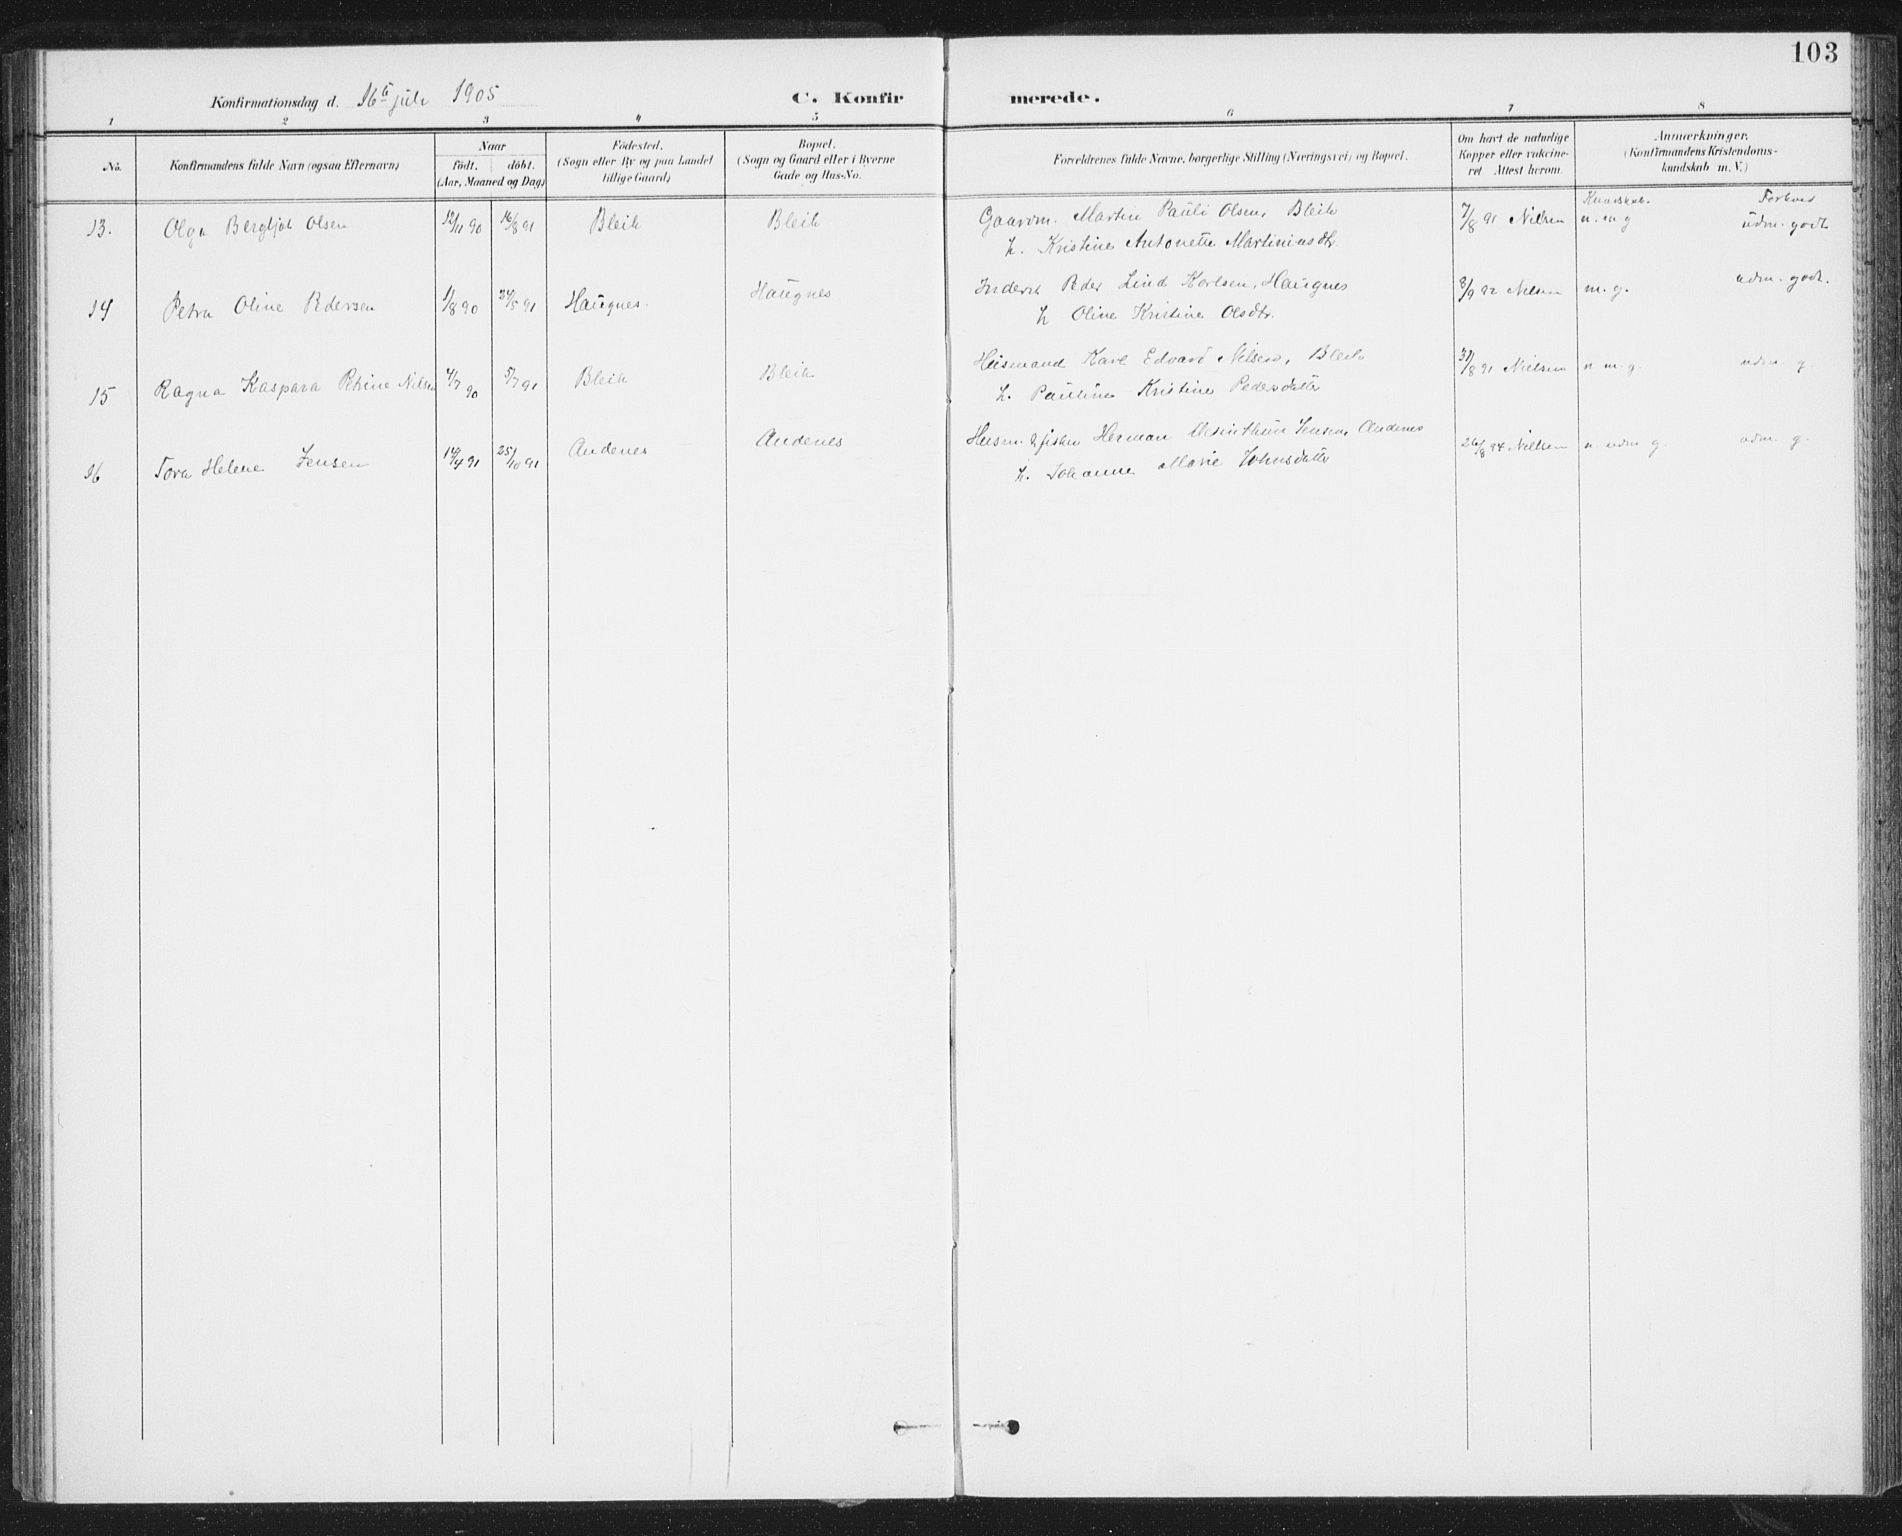 103
Konfirmationsdag d. 16de juli 1905 C. Konfirmerede.
1 2 3 4 5 6 7 8
No. Konfirmandens fulde Navn (ogsaa Efternavn) Naar født. døbt. (Aar, Maaned og Dag) Fødested. (Sogn eller By og paa Landet tillige Gaard) Bopæl. (Sogn og Gaard eller i Byerne Gade og Hus-No. Forældrenes fulde Navne, borgerlige Stilling (Næringsvei) og Bopæl. Om havt de naturlige Kopper eller vakcineret. Attest herom. Anmærkninger. (Konfirmandens Kristendomskundskab m. V.)
Kundskab. Forhold
13. Olga Bergljot Olsen 12/11 90 16/8 91 Bleik Bleik Gaardm. Martin Pauli Olsen, Bleik 7/8 91 Nielsen n. m g udm. godt
h. Kristine Antonette Martiniusdtr.
14 Petra Oline Pedersen 1/8 90 24/5 91 Haugnes. Haugnes Inderst Peder Lind Karlsen, Haugnes 8/9 92 Nielsen m. g. udm. godt.
h Oline Kristine Olsdtr.
15 Ragna Kaspara Petrine Nilsen 4/7 90 5/7 91 Bleik Bleik Husmand Karl Edvard Nilsen, Bleik 31/8 91 Nielsen n m. g. udm. g.
h. Pauline Kristine Pedersdatter
16 Tora Helene Jensen 14/4 91 25/10 91 Andenes Andenes Husm. & fisker Herman Jensen, Andenes 26/8 94 Nielsen n udm g. udm. g.
h. Johanne Marie Johnsdatter